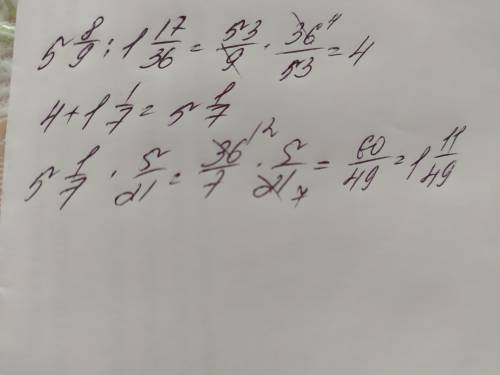 5 8/9 : 1 17/36 = 53/9 · 36 4/53 = 4
4 + 1 1/7 = 5 1/7
5 1/7 · 5/21 = 36 12/7 · 5/21 7 = 60/49 = 1 11/49